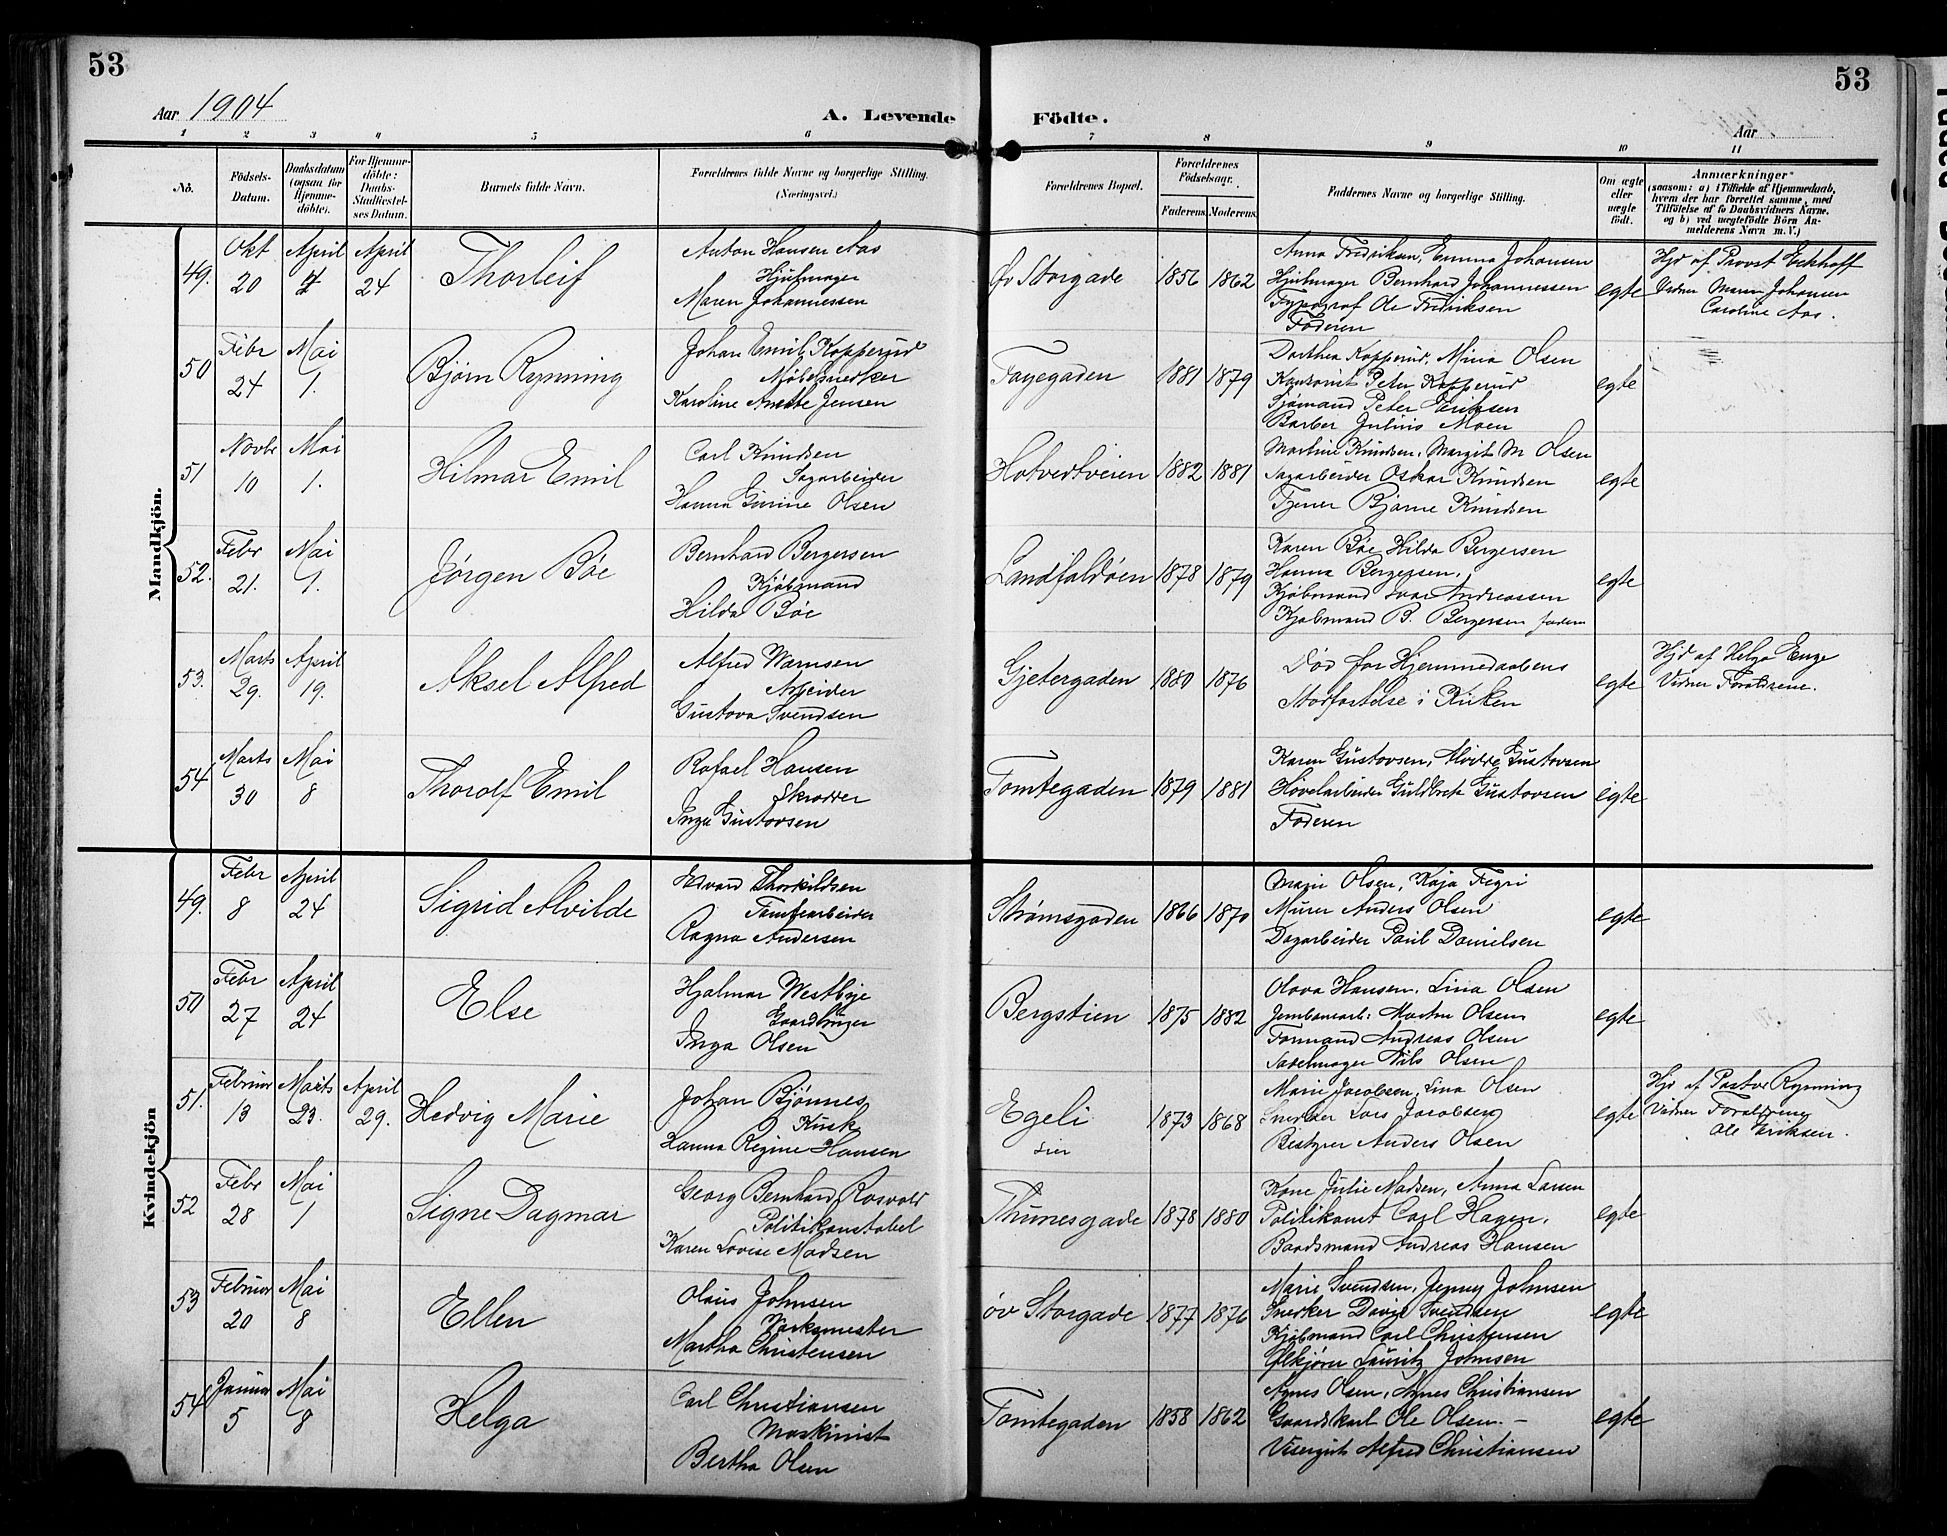 53
53
Aar 1904
A. Levende Födte.
Aar
1 2 3 4 5 6 7 8 9 10 11
No.
Födsels-Datum.
Daabsdatum (ogsaa for Hjemmedöbte).
For Hjemmedöbte: Daabs-Stadfæstelses Datum.
Barnets fulde Navn.
Forældrenes fulde Navne og borgerlige Stilling.
(Næringsvei.)
Forældrenes Bopæl.
Forældrenes Födselsaar.
Faderens. Moderens.
Faddernes Navne og borgerlige Stilling.
Om ægte eller uægte födt.
Anmærkninger
(saasom: a) i Tilfælde af Hjemmedaab, hvem der har forrettet samme, med Tilföielse af to Daabsvidners Navne. og b) ved uægtefödte Börn Anmelderens Navn m. V.)
Mandkjön.
49. Okt 20 April April 24 Thorleif
Anton Hansen Aas
Hjulmager
Maren Johannessen
Øv Storgade 1856 1862
Anna Fredriksen, Emma Johansen
Hjulmager Bernhard Johannessen
Typograf Ole Fredriksen
Faderen
egte
Hjd af Provst Eckhoff
Vidner Maren Johansen
Caroline Aas.
50 Febr 24 Mai 1. Bjørn Rynning
Johan Emil Kopperud
Møbelsnedker
Karoline Anette Jensen
Fayegaden 1881 1879
Dorthea Kopperud, Mina Olsen
Kontorist Peter Kopperud
Sjømand Peter Eriksen
Barber Julius Moen
egte
51 Novbr 10 Mai 1. Hilmar Emil
Carl Knudsen
Sagarbeider
Hanna Gurine Olsen
Hotvedtveien 1882 1881
Martine Knudsen, Margit M Olsen
Sagarbeider Oskar Knudsen
Tjener Bjarne Knudsen
egte
52. Febr 21. Mai 1. Jørgen Bøe
Bernhard Bergersen
Kjøbmand
Hilda Bøe
Landfaldøen 1878 1879
Karen Bøe Hilda Bergersen
Hanna Bergersen.
Kjøbmand Ivar Andreassen
Kjøbmand B. Bergersen fader
egte
53. Marts 29. April 19. Aksel Alfred
Alfred Warnsen
Arbeider
Gustava Svendsen
Gjetergaden 1880 1876
Død før Hjemmedaabens
Stadfæstelse i Kirken
egte
Hjd af Helga Enge
Vidner Forældrene.
54 Marts 30 Mai 8 Thorolf Emil
Rafael Hansen
Skrædder
Inga Gustavsen
Tomtegaden 1879 1881
Karen Gustavsen, Alvilde Gustavsen
Høvelarbeider Guldbrek Gustavsen
Faderen
egte
Kvindekjön
49. Febr 8 April 24 Sigrid Alvilde
Edvard Thorkildsen
Tomtearbeider
Ragna Andersen
Strømsgaden 1866 1870
Marie Olsen, Kaja Fegri
Murer Anders Olsen
Dagarbeider Paul Danielsen
egte
50 Febr 27 April 24 Else
Hjalmar Westbye
Gaardbruger
Inga Olsen
Bergstien 1875 1882
Olava Hansen, Lina Olsen
Jernbanearb. Morten Olsen
Formand Andreas Olsen
Sadelmager Nils Olsen
egte
51. Februar 13 Marts 23. April 29. Hedvig Marie
Johan Bjønnes
Kusk
Hanna Regine Hansen
Egeli
Lier
1873 1868
Marie Jacobsen, Lina Olsen
Snedker Lars Jacobsen
Bestyrer Anders Olsen
egte
Hjd af Pastor Rynning
Vidner Forældrene
Ole Eriksen.
52 Febr 28 Mai 1 Signe Dagmar
Georg Bernhard Rosvold
Politikonstabel
Karen Lovise Madsen
Thunesgade 1878 1880
Kone Julie Madsen, Anna Larsen
Politikonst Carl Hagen.
Baadsmand Andreas Hansen
egte
53 Februar 20 Mai 8 Ellen
Olaus Johnsen
Værksmester
Martha Christensen
øv Storgade 1877 1876
Marie Svendsen, Jenny Johnsen
Snedker David Svendsen
Kjøbmand Carl Christensen
Ølkjører Lauritz Johnsen
egte
54 Januar 5 Mai 8 Helga
Carl Christiansen
Maskinist
Bertha Olsen
Tomtegaden 1858 1862
Agnes Olsen, Agnes Christiansen
Gaardskarl Ole Olsen. –
Visergut Alfred Christiansen
egte